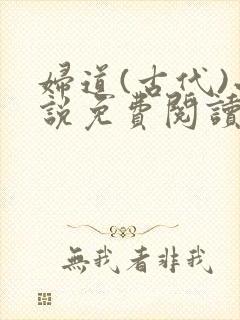 婦道(古代)
說免費閱讀
無我者非我